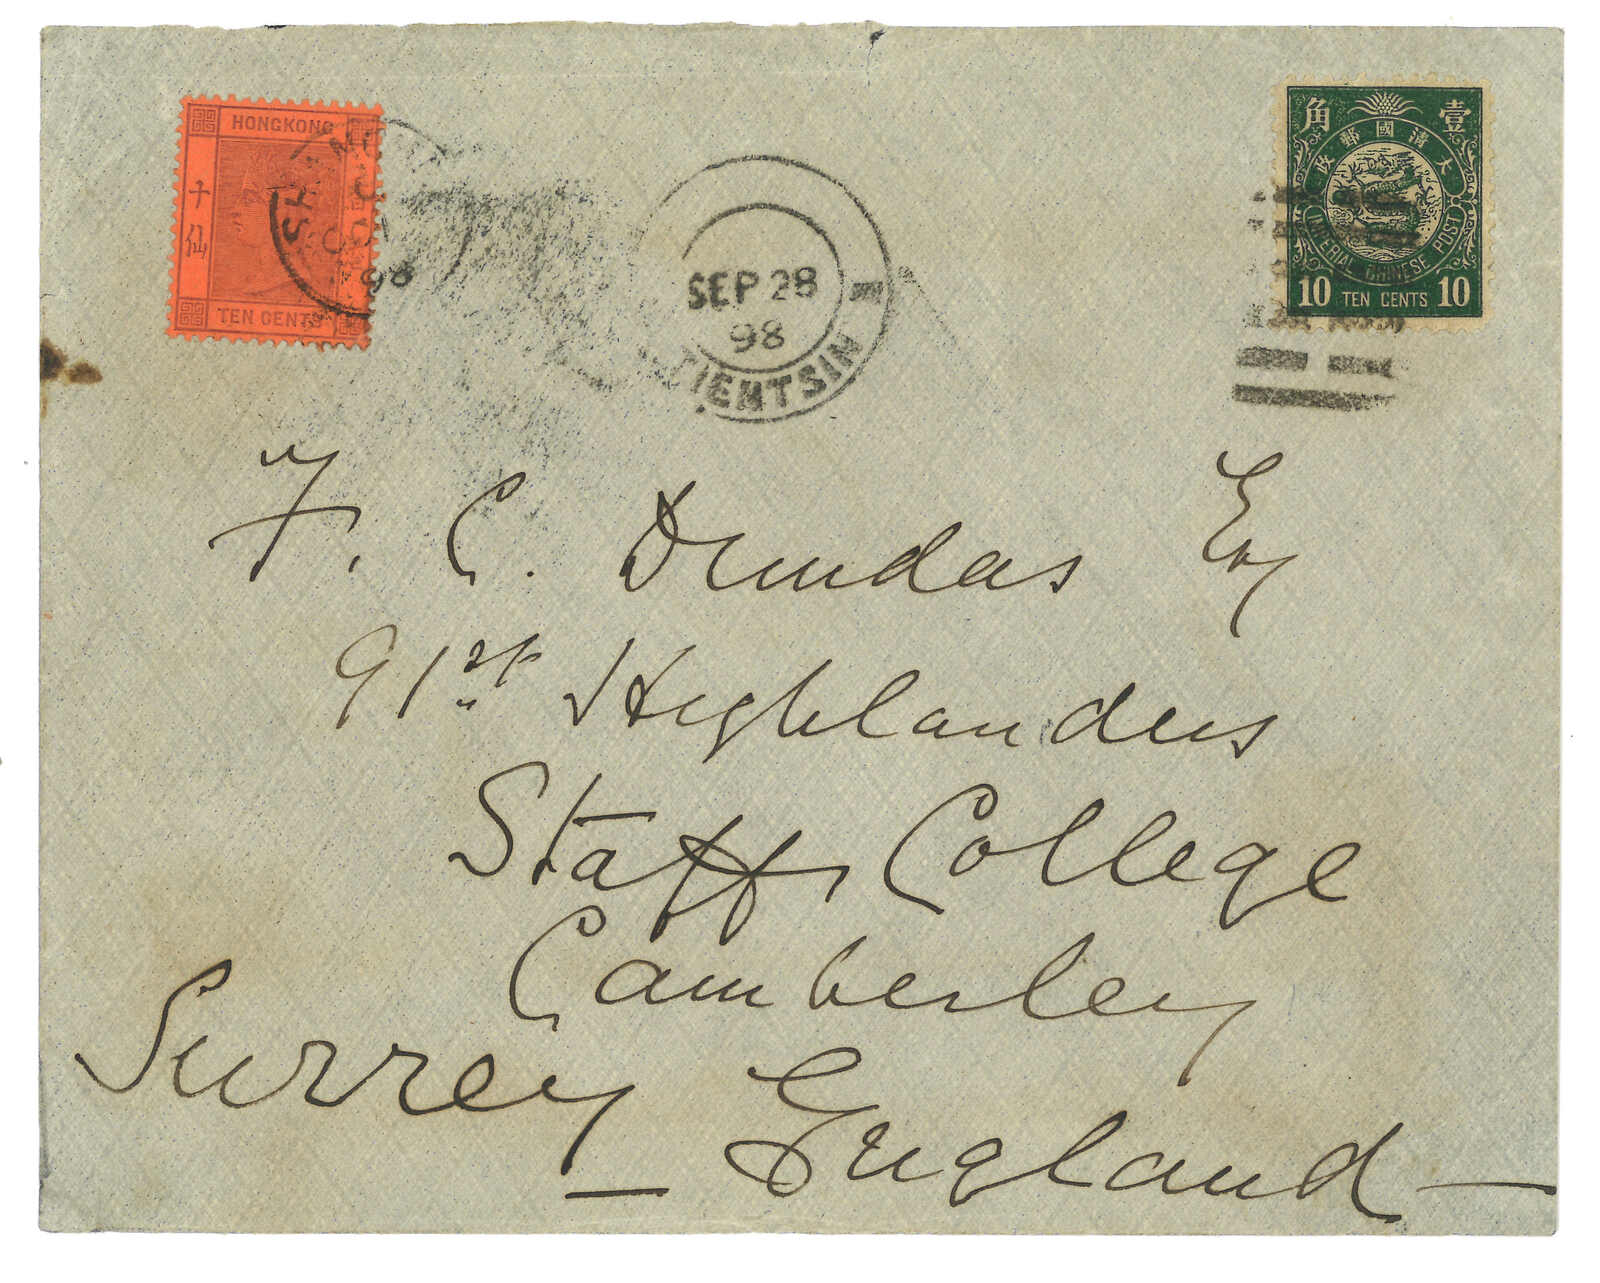 HONGKONG
十仙
TEN CENTS
SHANGHAI
OC
98
SEP 28
98
TIENTSIN
角 壹
政郵國清大
IMPERIAL CHINESE POST
10 TEN CENTS 10
F. C. Dundas Esq
91st Highlanders
Staff College
Camberley
Surrey England